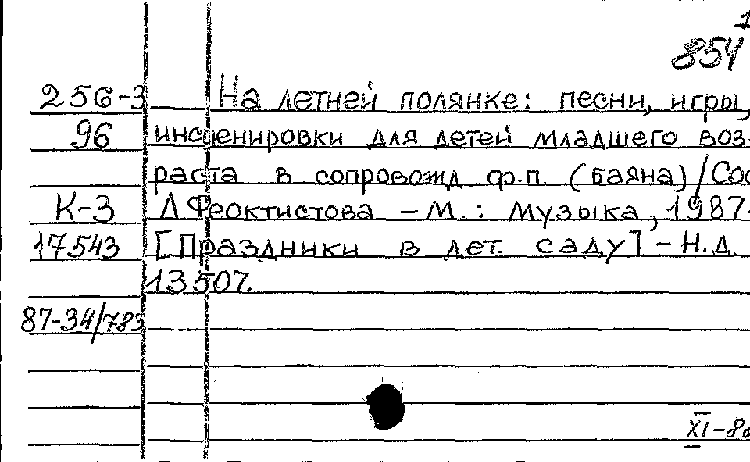 854
256-3 На летней полянке: песни, игры,
96 инсценировки для детей младшего воз-
раста в сопровожд ф.п. (баяна)/Сос
К-3 Л Феоктистова - М.: Музыка, 1987.
17543 [Праздники в дет. саду] - Н.д.
13507.
87-34/783
XI-8